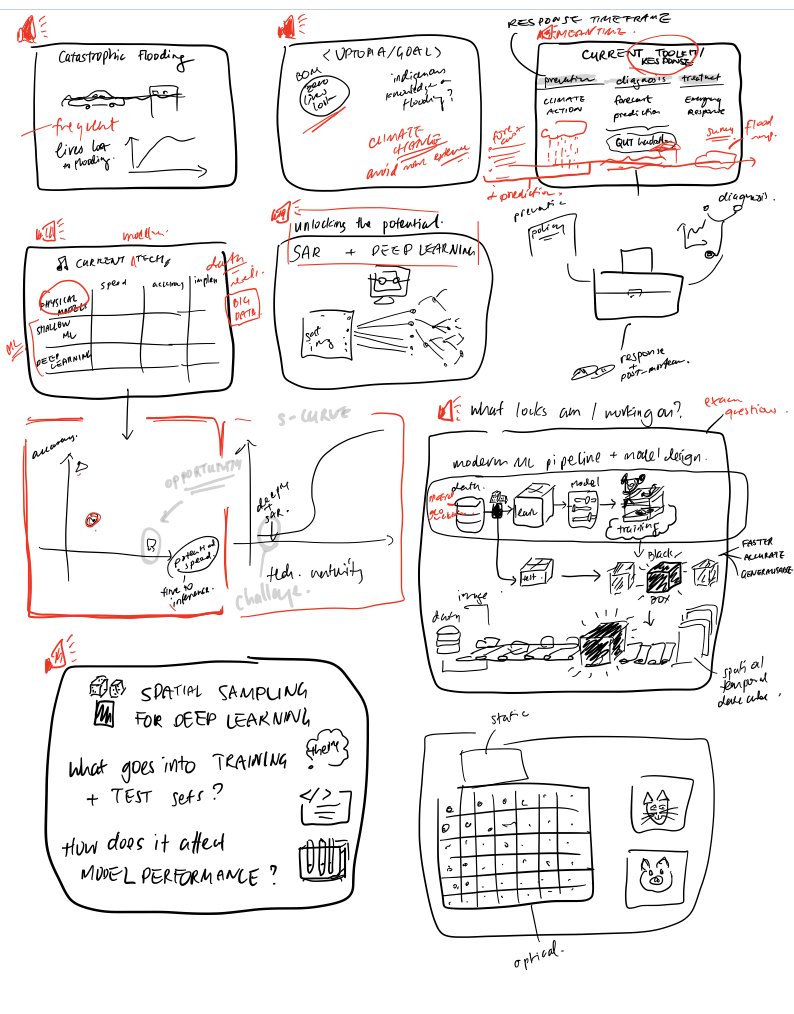 Catastrophic Flooding
frequent
lives lost
to flooding.
<UPTOMA/GOAL>
BOM
zero
lives
lost
indigenous
knowledge on
flooding?
CLIMATE
CHANGE
avoid more extreme
RESPONSE TIMEFRAME
MEANTIME.
CURRENT TOOLKIT/
RESPONSE
prevention
diagnosis
treatment
CLIMATE
ACTION
forecast
prediction
Emergency
Response
QUT
forecast
survey
flood
map.
+ prediction.
policy
diagnosis.
response
+
post-mortem.
CURRENT TECH
speed
accuracy
implem
PHYSICAL
MODELS
SHALLOW
ML
DEEP LEARNING
ML
data
needs.
BIG
DATA
unlocking the potential.
SAR + DEEP LEARNING
accuracy.
OPPORTUNITY
potential
speed.
time to
inference.
S-CURVE
deep ML
+
SAR.
tech. maturity
challenge.
what locks am I working on?
exam
questions.
modern ML pipeline + model design.
data
model
training
test.
Black
BOX
FASTER
ACCURATE
GENERALISABLE
data
image
spatial
temporal
data cube
SPATIAL SAMPLING
FOR DEEP LEARNING
What goes into TRAINING
+ TEST sets?
theory
</>
How does it affect
MODEL PERFORMANCE?
static
optical.